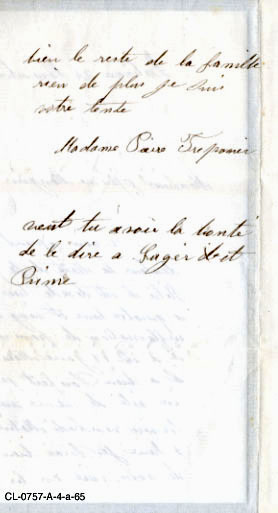 bien le reste de la famille
rien de plus je suis
votre tente
Madame Pière Trepanier
veut tu avoir la bonté
de le dire a
Prime
CL-0757-A-4-a-65